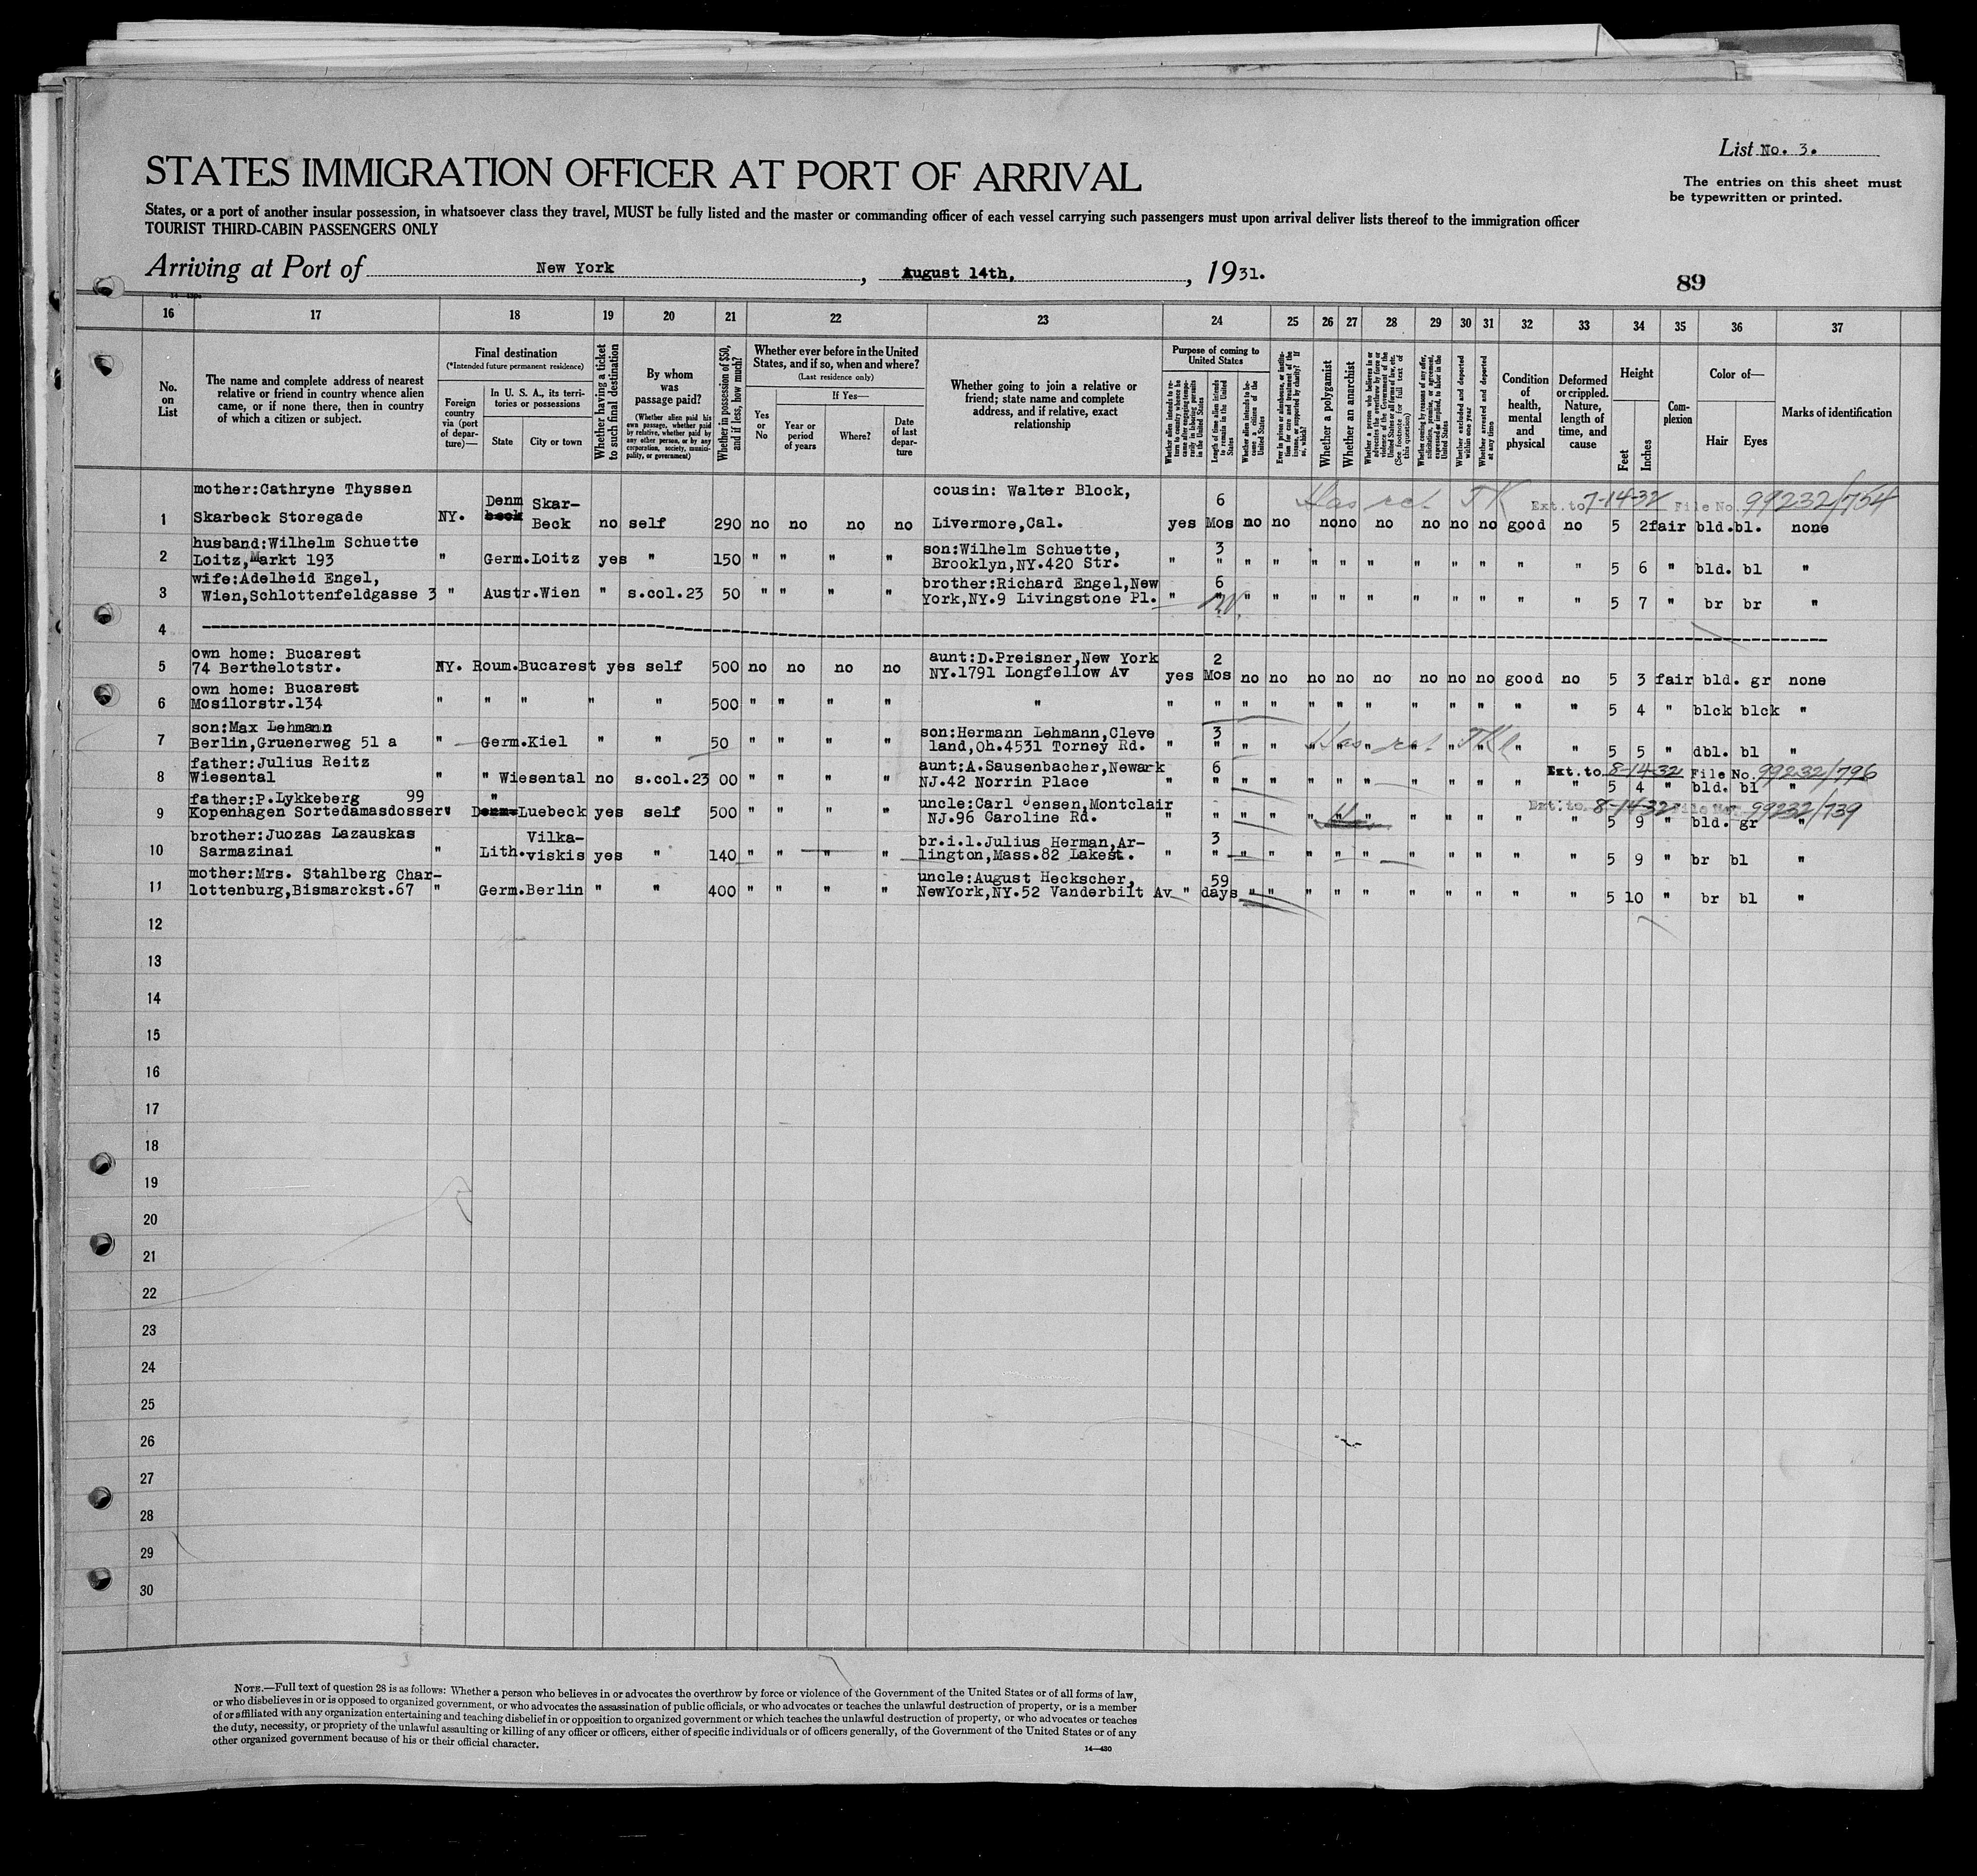 List No. 3.
STATES IMMIGRATION OFFICER AT PORT OF ARRIVAL
The entries on this sheet must
be typewritten or printed.
States, or a port of another insular possession, in whatsoever class they travel, MUST be fully listed and the master or commanding officer of each vessel carrying such passengers must upon arrival deliver lists thereof to the immigration officer
TOURIST THIRD-CABIN PASSENGERS ONLY
Arriving at Port of New York, August 14th, 1931.
89
16 17 18 19 20 21 22 23 24 25 26 27 28 29 30 31 32 33 34 35 36 37
No. on List
The name and complete address of nearest
relative or friend in country whence alien
came, or if none there, then in country
of which a citizen or subject.
Final destination
(*Intended future permanent residence)
Foreign country via (port of departure)—
In U. S. A., its territories or possessions
State
City or town
Whether having a ticket to such final destination
By whom was passage paid?
(Whether alien paid his own passage, whether paid by relative, whether paid by any other person, or by any corporation, society, municipality, or government)
Whether in possession of $50, and if less, how much?
Whether ever before in the United States, and if so, when and where?
(Last residence only)
Yes or No
If Yes—
Year or period of years
Where?
Date of last departure
Whether going to join a relative or
friend; state name and complete
address, and if relative, exact
relationship
Purpose of coming to United States
Length of time alien intends to remain in the United States
Whether alien intends to become a citizen of the United States
Whether a polygamist
Whether an anarchist
(See footnote for full text of this question)
Whether excluded and deported within one year
Whether arrested and deported at any time
Condition of health, mental and physical
Deformed or crippled. Nature, length of time, and cause
Height
Feet
Inches
Complexion
Color of—
Hair
Eyes
Marks of identification
mother:Cathryne Thyssen Denm Skar- cousin: Walter Block, 6 Has ret TK Ext. to 7-14-32 File No. 99232/754
1 Skarbeck Storegade NY. beck Beck no self 290 no no no no Livermore,Cal. yes Mos no no no no no no no no good no 5 2 fair bld. bl. none
husband:Wilhelm Schuette son:Wilhelm Schuette, 3
2 Loitz,Markt 193 " Germ. Loitz yes " 150 " " " " Brooklyn,NY.420 Str. " " " " " " " " " " " " 5 6 " bld. bl "
wife:Adelheid Engel, brother:Richard Engel,New 6
3 Wien,Schlottenfeldgasse 3 " Austr. Wien " s.col.23 50 " " " " York,NY.9 Livingstone Pl. " " " " " " " " " " " " 5 7 " br br "
4
own home: Bucarest aunt:D.Preisner,New York 2
5 74 Berthelotstr. NY. Roum. Bucarest yes self 500 no no no no NY.1791 Longfellow Av yes Mos no no no no no no no no good no 5 3 fair bld. gr none
own home: Bucarest
6 Mosilorstr.134 " " " " " 500 " " " " " " " " " " " " " " " " " " 5 4 " blck blck "
son:Max Lehmann son:Hermann Lehmann,Cleve 3 Has ret
7 Berlin,Gruenerweg 51 a " Germ. Kiel " " 50 " " " " land,Oh.4531 Torney Rd. " " " " " " " " " " " " 5 5 " dbl. bl "
father:Julius Reitz aunt:A.Sausenbacher,Newark 6 Ext. to 8-14-32 File No. 99232/796
8 Wiesental " " Wiesental no s.col.23 00 " " " " NJ.42 Norrin Place " " " " " " " " " " " " 5 4 " bld. bl "
father:P.Lykkeberg 99 " uncle:Carl Jensen,Montclair Ext. to 8-14-32 File No. 99232/739
9 Kopenhagen Sortedamasdosser " Denm. Luebeck yes self 500 " " " " NJ.96 Caroline Rd. " " " " " " " " " " " " 5 9 " bld. gr "
brother:Juozas Lazauskas Vilka- br.i.l.Julius Herman,Ar- 3
10 Sarmazinai " Lith. viskis yes " 140 " " " " lington,Mass.82 Lakest. " " " " " " " " " " " " 5 9 " br bl "
mother:Mrs. Stahlberg Char- uncle:August Heckscher, 59
11 lottenburg,Bismarckst.67 " Germ. Berlin " " 400 " " " " NewYork,NY.52 Vanderbilt Av " days " " " " " " " " " " 5 10 " br bl "
12
13
14
15
16
17
18
19
20
21
22
23
24
25
26
27
28
29
30
NOTE.—Full text of question 28 is as follows: Whether a person who believes in or advocates the overthrow by force or violence of the Government of the United States or of all forms of law,
or who disbelieves in or is opposed to organized government, or who advocates the assassination of public officials, or who advocates or teaches the unlawful destruction of property, or is a member
of or affiliated with any organization entertaining and teaching disbelief in or opposition to organized government or which teaches the unlawful destruction of property, or who advocates or teaches
the duty, necessity, or propriety of the unlawful assaulting or killing of any officer or officers, either of specific individuals or of officers generally, of the Government of the United States or of any
other organized government because of his or their official character.
14—430